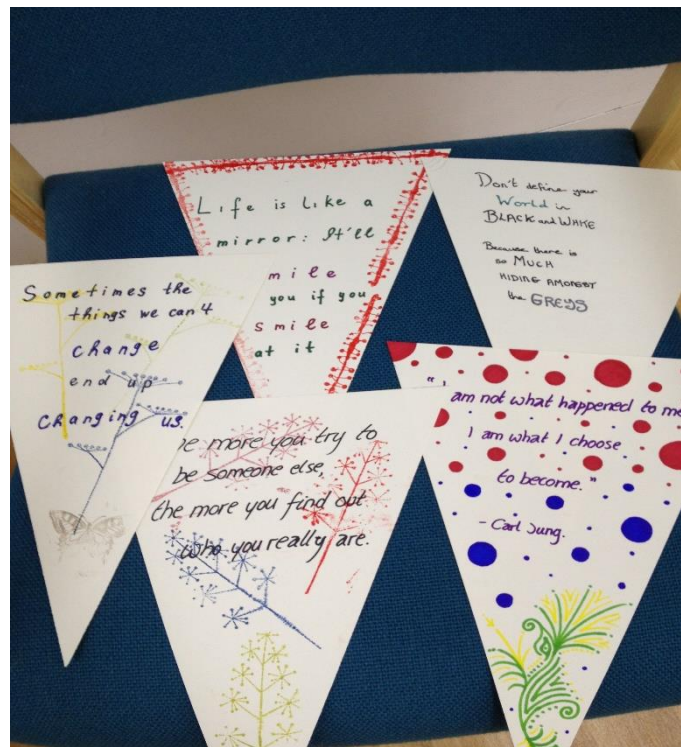 Life is like a
mirror: It'll
mile
you if you
smile
at it
Don't define your
World in
BLACK and WHITE
Because there is
so MUCH
HIDING AMONGST
the GREYS
Sometimes the
things we can't
change
end up
changing us.
e more you try to
be someone else,
the more you find out
who you really are.
"I am not what happened to me
I am what I choose
to become."
- Carl Jung.